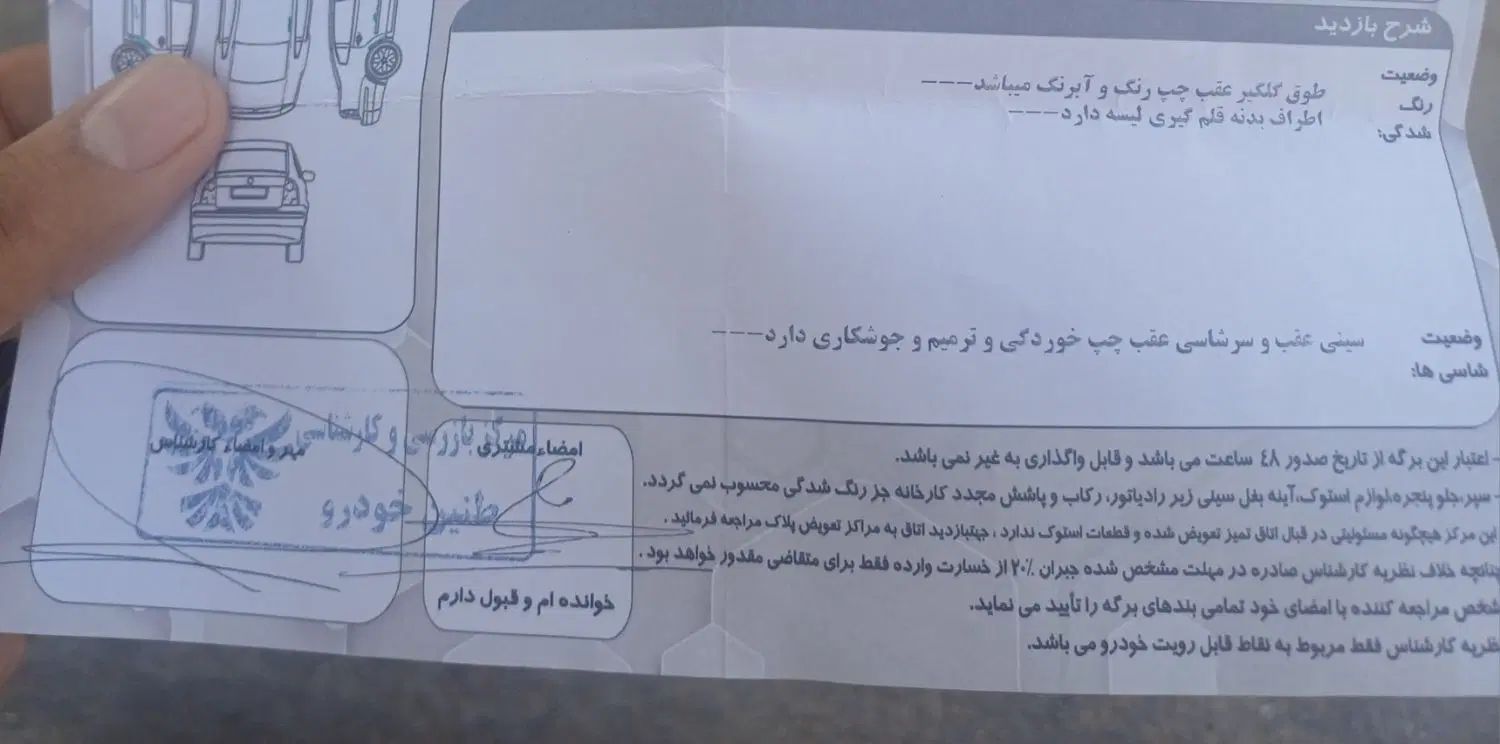 شرح بازدید
وضعیت
رنگ
شدگی:
طوق گلگیر عقب چپ رنگ و آبرنگ میباشد---
اطراف بدنه قلم گیری لیسه دارد---
وضعیت
شاسی ها:
سینی عقب و سرشاسی عقب چپ خوردگی و ترمیم و جوشکاری دارد---
- اعتبار این برگه از تاریخ صدور ٤٨ ساعت می باشد و قابل واگذاری به غیر نمی باشد.
- سپر،جلو پنجره،لوازم استوک،آینه بغل سینی زیر رادیاتور، رکاب و پاشش مجدد کارخانه جز رنگ شدگی محسوب نمی گردد.
این مرکز هیچگونه مسئولیتی در قبال اتاق تمیز تعویض شده و قطعات استوک ندارد ، جهتبازدید اتاق به مراکز تعویض پلاک مراجعه فرمائید .
چنانچه خلاف نظریه کارشناس صادره در مهلت مشخص شده جبران ۲۰٪ از خسارت وارده فقط برای متقاضی مقدور خواهد بود .
شخص مراجعه کننده با امضای خود تمامی بندهای برگه را تأیید می نماید.
نظریه کارشناس فقط مربوط به نقاط قابل رویت خودرو می باشد.
امضاء مشتری
خوانده ام و قبول دارم
مهر و امضاء کارشناس
مرکز بازرسی و کارشناسی
طنین خودرو